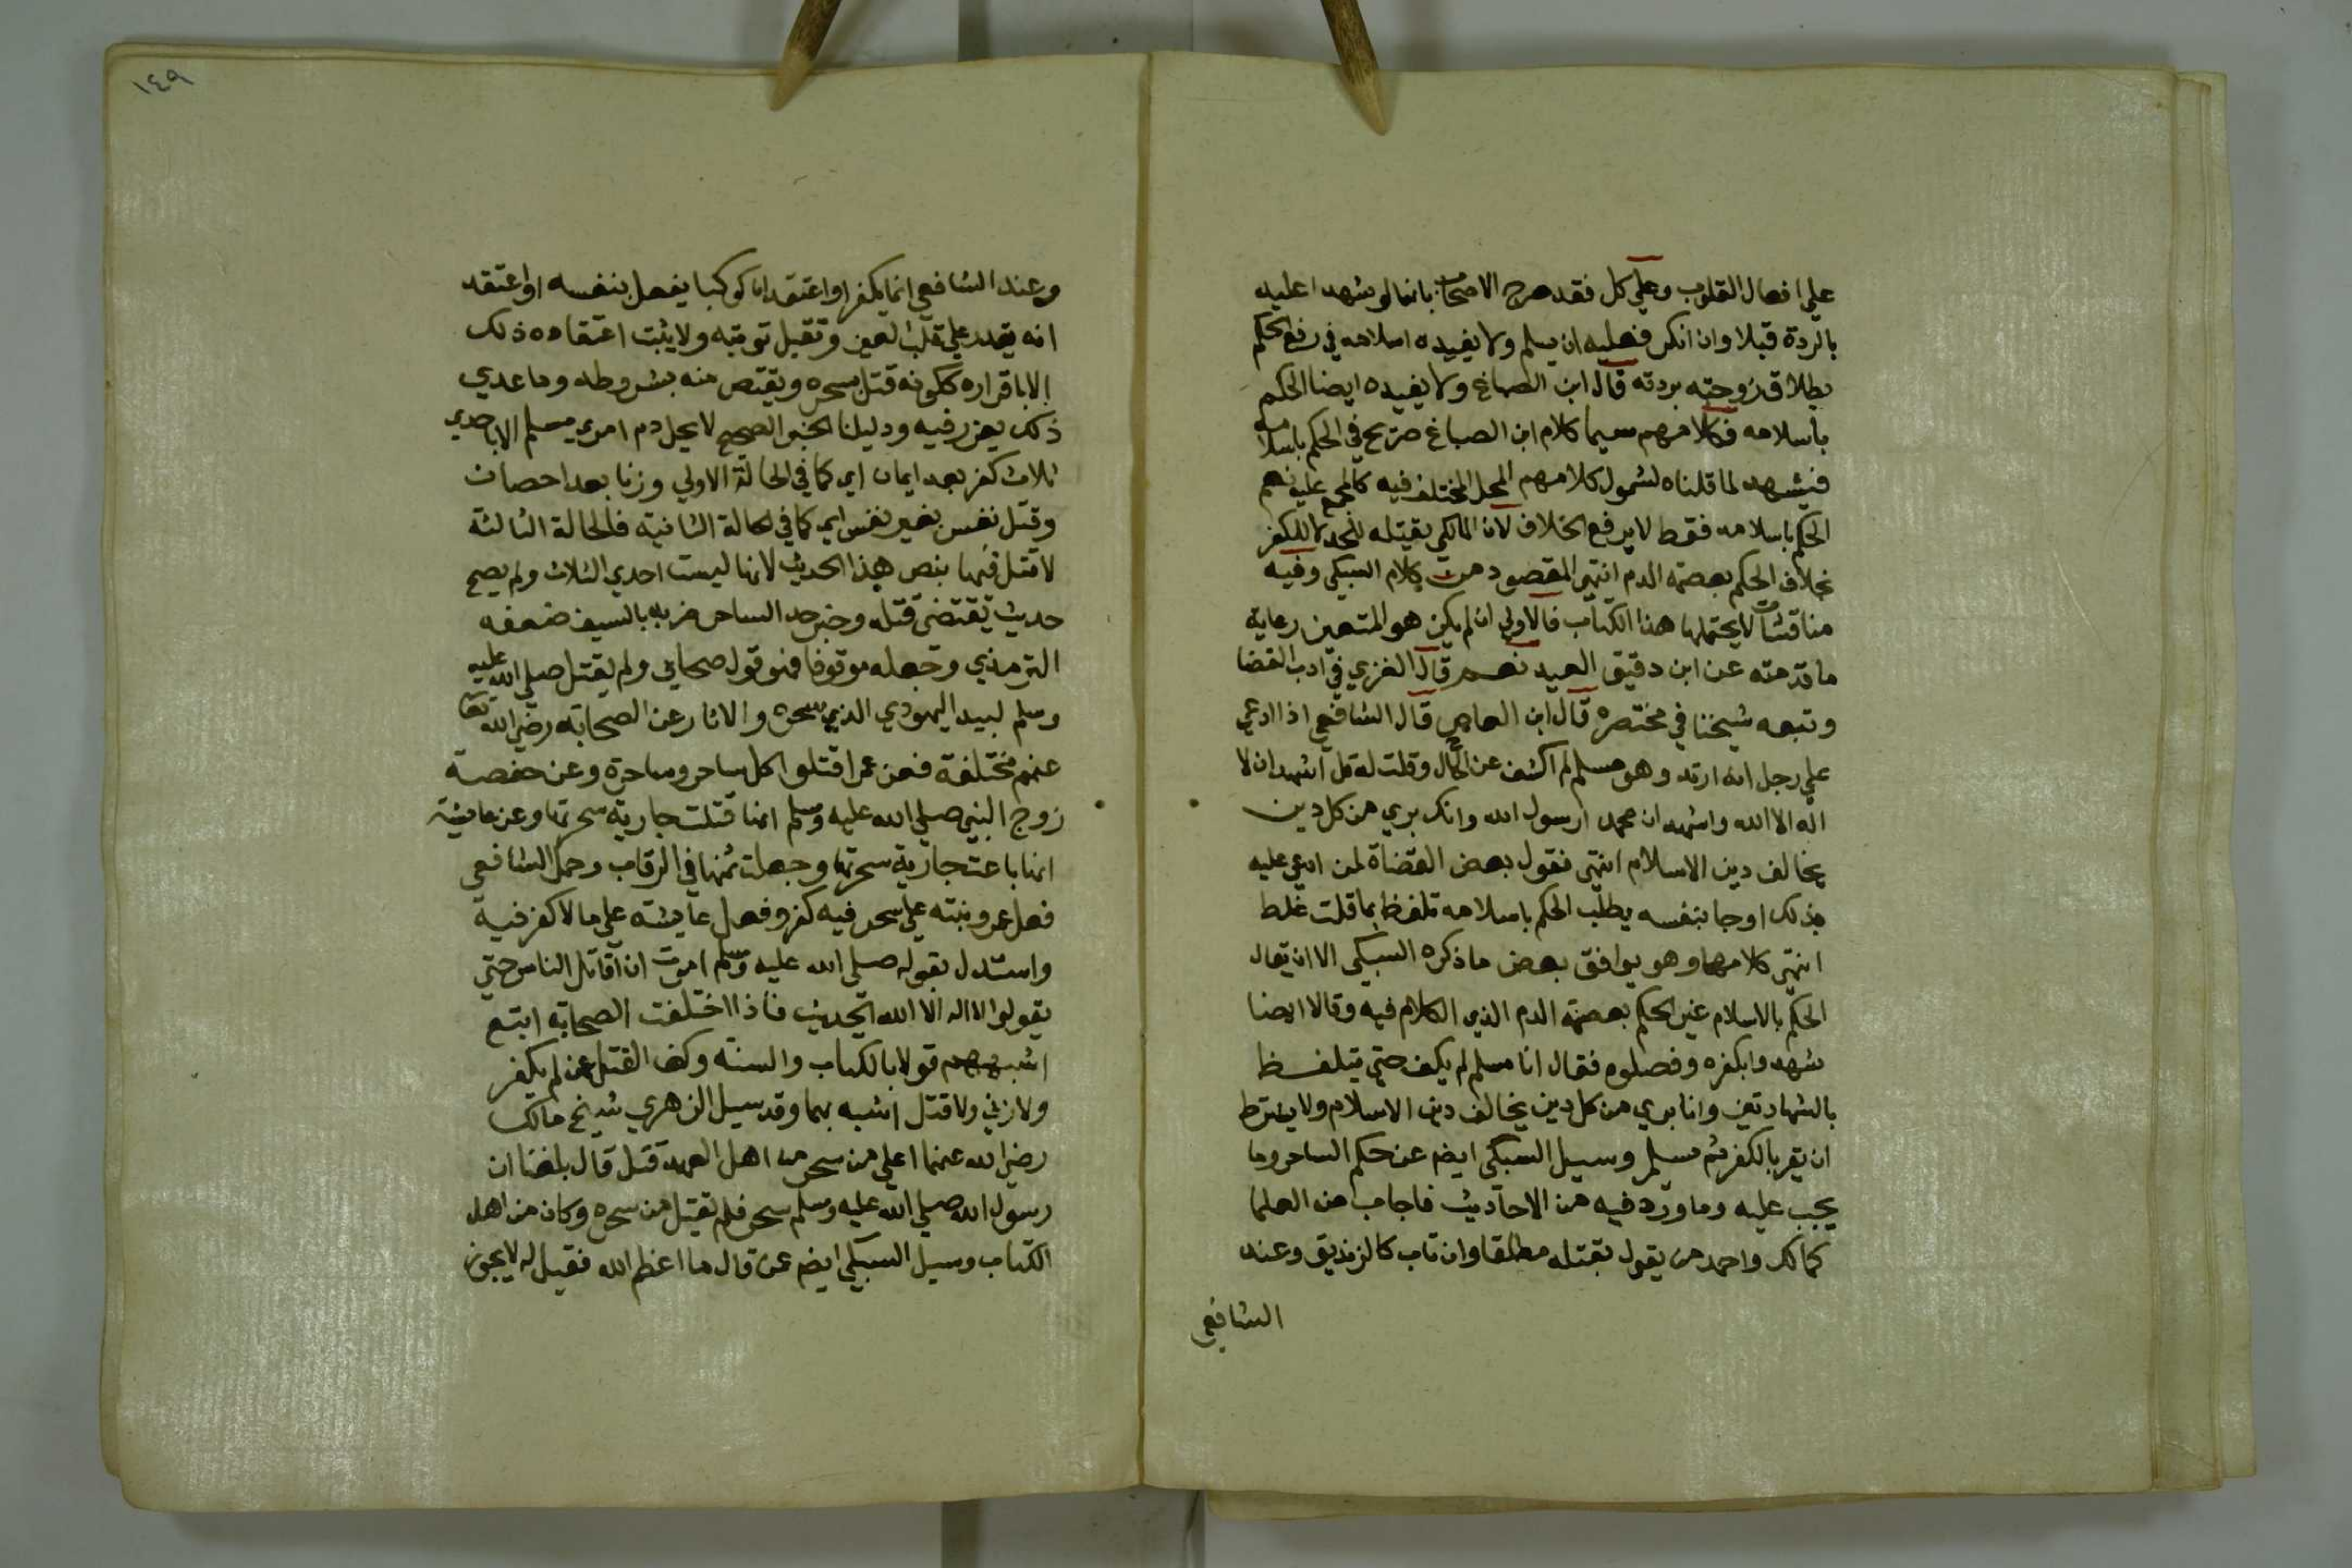 علي افعال القلوب وعلي كل فقد صرح الاصحاب بانهما لو شهدا عليه
بالردة قبلا وان انكر فعليه ان يسلم ولا يفيده اسلامه في رفع الحكم
بطلاق زوجته بردته قال ابن الصباغ ولا يفيده ايضا الحكم
باسلامه فكلامهم سيما كلام ابن الصباغ صريح في الحكم باسلامه
فيشهد لما قلناه لشمول كلامهم المحل المختلف فيه كالمجمع عليه نعم
الحكم باسلامه فقط لا يرفع الخلاف لان المالكي يقتله للحد لا للكفر
بخلاف الحكم بعصمة الدم انتهي المقصود من كلام السبكي وفيه
مناقشات لا يحتملها هذا الكتاب فالاولي ان لم يكن هو المتعين رعاية
ما قدمته عن ابن دقيق العيد نعم قال الغزي في ادب القضا
وتبعه شيخنا في مختصره قال ابن القاص قال الشافعي اذا ادعي
علي رجل انه ارتد وهو مسلم لم اكشف عن الحال وقلت له قل اشهد ان لا
اله الا الله واشهد ان محمدا رسول الله وانك بري من كل دين
يخالف دين الاسلام انتهي فقول بعض القضاة لمن ادعي عليه
بذلك او جا بنفسه يطلب الحكم باسلامه تلفظ بما قلت غلط
انتهي كلامهما وهو يوافق بعض ما ذكره السبكي الا ان يقال
الحكم بالاسلام غير الحكم بعصمة الدم الذي الكلام فيه وقالا ايضا
شهدوا بكفره وفصلوه فقال انا مسلم لم يكف حتي يتلفظ
بالشهادتين وانا بري من كل دين يخالف دين الاسلام ولا يشترط
ان يقر بالكفر ثم يسلم وسيل السبكي ايضم عن حكم الساحر وما
يجب عليه وما ورد فيه من الاحاديث فاجاب من العلما
كمالك واحمد من يقول بقتله مطلقا وان تاب كالزنديق وعند
الشافعي
١٤٩
وعند الشافعي انما يكفر او اعتقد ان كوكبا يفعل بنفسه او اعتقد
انه يقدر علي قلب العين وتقبل توبته ولا يثبت اعتقاده ذلك
الا باقراره ككونه قتل بسحره ويقتص منه بشروطه وما عدي
ذلك يعزر فيه ودليلنا الخبر الصحيح لا يحل دم امري مسلم الا باحدي
ثلاث كفر بعد ايمان اي كما في الحالة الاولي وزنا بعد احصان
وقتل نفس بغير نفس اي كما في الحالة الثانية فالحالة الثالثة
لا قتل فيها بنص هذا الحديث لانها ليست احدي الثلاث ولم يصح
حديث يقتضي قتله وخبر حد الساحر ضربه بالسيف ضعفه
الترمذي وجعله موقوفا فهو قول صحابي ولم يقتل صلي الله عليه
وسلم لبيد اليهودي الذي سحره والاثار عن الصحابة رضي الله تعا
عنهم مختلفة فعن عمر اقتلوا كل ساحر وساحرة وعن حفصة
زوج النبي صلي الله عليه وسلم انها قتلت جارية سحرتها وعن عايشة
انها باعت جارية سحرتها وجعلت ثمنها في الرقاب وحمل الشافعي
فعل عمر وبنته علي سحر فيه كفر وفعل عايشة علي ما لا كفر فيه
واستدل بقوله صلي الله عليه وسلم امرت ان اقاتل الناس حتي
يقولوا لا اله الا الله الحديث فاذا اختلفت الصحابة اتبع
اشبههم قولا بالكتاب والسنة وكف القتل عن لم يكفر
ولا زني ولا قتل اشبه بهما وقد سيل الزهري شيخ مالك
رضي الله عنهما اعلي من سحر من اهل العهد قتل قال بلغنا ان
رسول الله صلي الله عليه وسلم سحر فلم يقتل من سحره وكان من اهل
الكتاب وسيل السبكي ايضم عن قال ما اعظم الله فقيل له لا يجوز